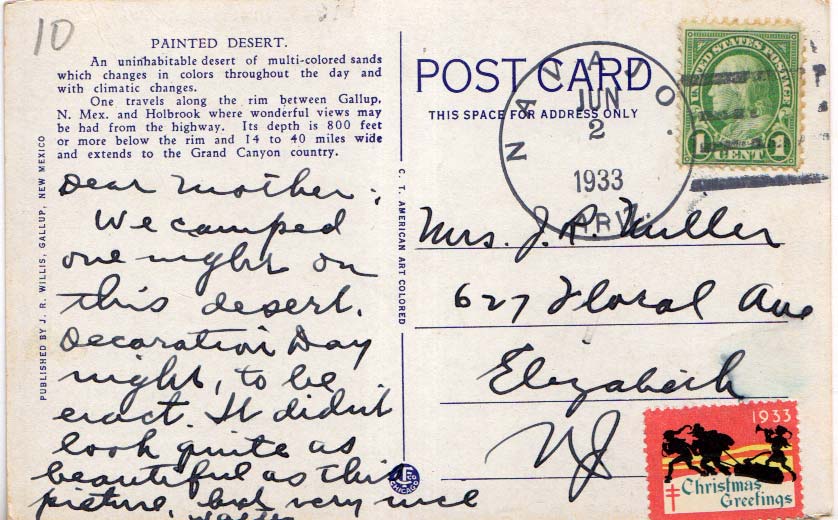 10
PAINTED DESERT.
An uninhabitable desert of multi-colored sands
which changes in colors throughout the day and
with climatic changes.
One travels along the rim between Gallup,
N. Mex. and Holbrook where wonderful views may
be had from the highway. Its depth is 800 feet
or more below the rim and 14 to 40 miles wide
and extends to the Grand Canyon country.
Dear Mother:
We camped
one night on
this desert.
Decoration Day
night, to be
exact. It didn't
look quite as
beautiful as this
picture, but very nice
PUBLISHED BY J. R. WILLIS, GALLUP, NEW MEXICO
C. T. AMERICAN ART COLORED
CHICAGO
POST CARD
THIS SPACE FOR ADDRESS ONLY
NAVAJO
JUN
2
1933
ARIZ.
UNITED STATES POSTAGE
1 CENT 1
Mrs. J. R. Miller
627 Floral Ave
Elizabeth
NJ
1933
Christmas
Greetings